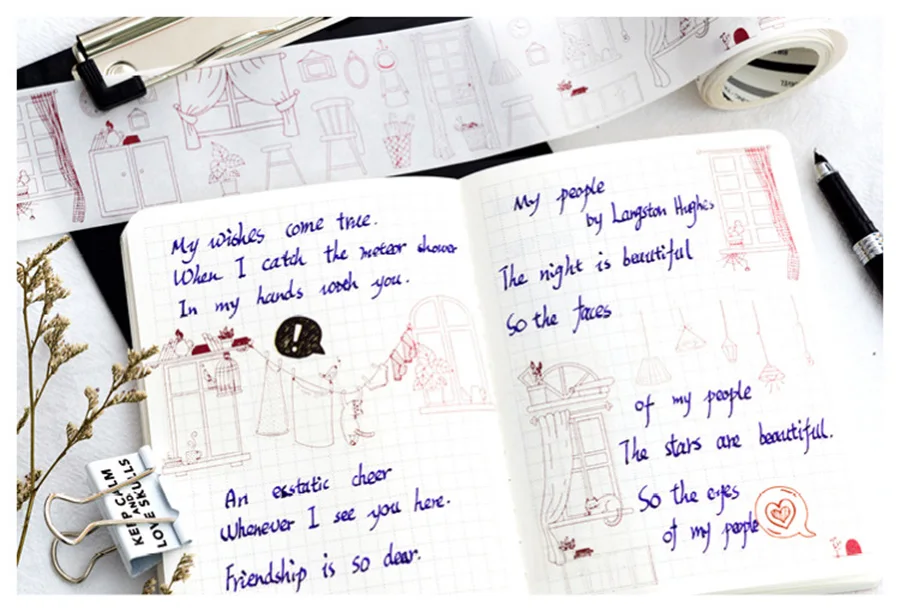 My wishes come true.
When I catch the meteor shower
In my hands with you.
!
An esstatic cheer
Whenever I see you here.
Friendship is so dear.
My people
by Langston Hughes
The night is beautiful
So the faces
of my people
The stars are beautiful.
So the eyes
of my people
KEEP CALM
AND
LOVE SKULLS